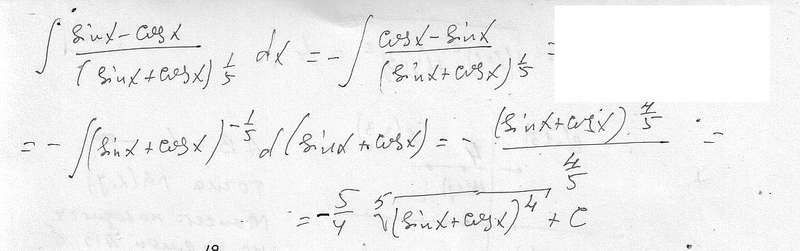 ∫ (sinx - cosx)/(sinx + cosx)^{1/5} dx = - ∫ (cosx - sinx)/(sinx + cosx)^{1/5} =
= - ∫ (sinx + cosx)^{-1/5} d(sinx + cosx) = - ((sinx + cosx)^{4/5})/(4/5) =
= - 5/4 ⁵√(sinx + cosx)^4 + C